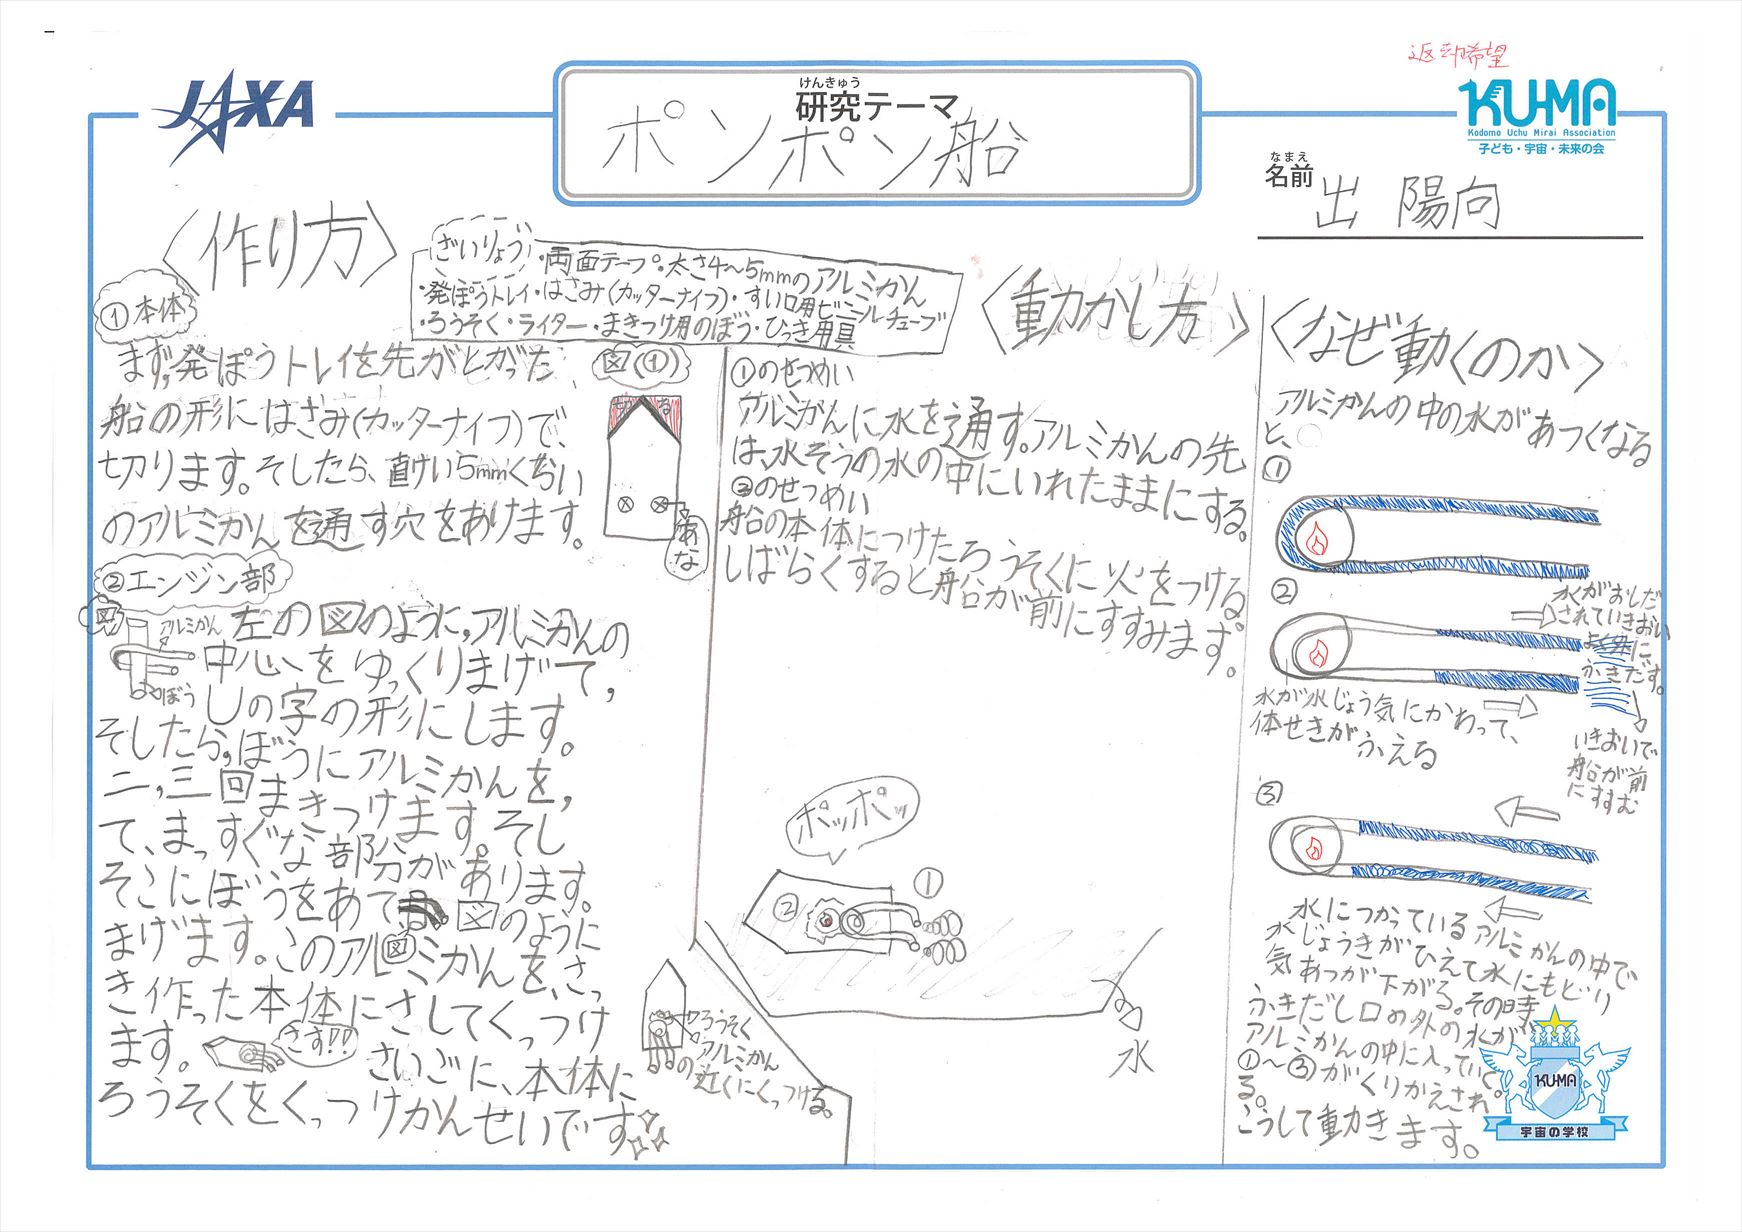 返却希望
JAXA
けんきゅう
研究テーマ
ポンポン船
KU-MA
Kodomo Uchu Mirai Association
子ども・宇宙・未来の会
なまえ
名前
出 陽向
〈作り方〉
ざいりょう
・両面テープ・太さ4〜5mmのアルミかん
・発ぽうトレイ・はさみ(カッターナイフ)・すい口用ビニールチューブ
・ろうそく・ライター・まきつけ用のぼう・ひっき用具
①本体
まず,発ぽうトレイを先がとがった
船の形にはさみ(カッターナイフ)で、
切ります。そしたら、直けい5mmくらい
のアルミかんを通す穴をあけます。
図(1)
切る
あな
②エンジン部
図
アルミかん
ぼう
左の図のように,アルミかんの
中心、をゆっくりまげて,
しの字の形にします。
そしたら,ぼうにアルミかんを,
二,三回まきつけます。そし
て、まっすぐな部分があります。
そこにぼうをあて図のように
まげます。このアルミかんを、さっ
図
き作った本体にさしてくっつけ
ます。
さす!!
さいごに、本体に
ろうそくをくっつけかんせいです
ろうそく
アルミかん
の近くにくっつける。
〈動かし方〉
①のせつめい
アルミかんに水を通す。アルミかんの先
は、水そうの水の中にいれたままにする。
②のせつめい
船の本体につけたろうそくに火をつける。
しばらくすると船が前にすすみます。
ポッポッ
①
②
水
〈なぜ動くのか〉
アルミかんの中の水があつくなる
と、
①
②
水がおしだ
されていきおい
よく外に
ふきだす。
水が水じょう気にかわって、
体せきがふえる
いきおいで
船が前
にすすむ
③
水につかっているアルミかんの中で
水じょうきがひえて水にもどり
気あつが下がる。その時
ふきだし口の外の水が
アルミかんの中に入っていく。
①〜③がくりかえされ
る。
こうして動きます。
KU-MA
宇宙の学校